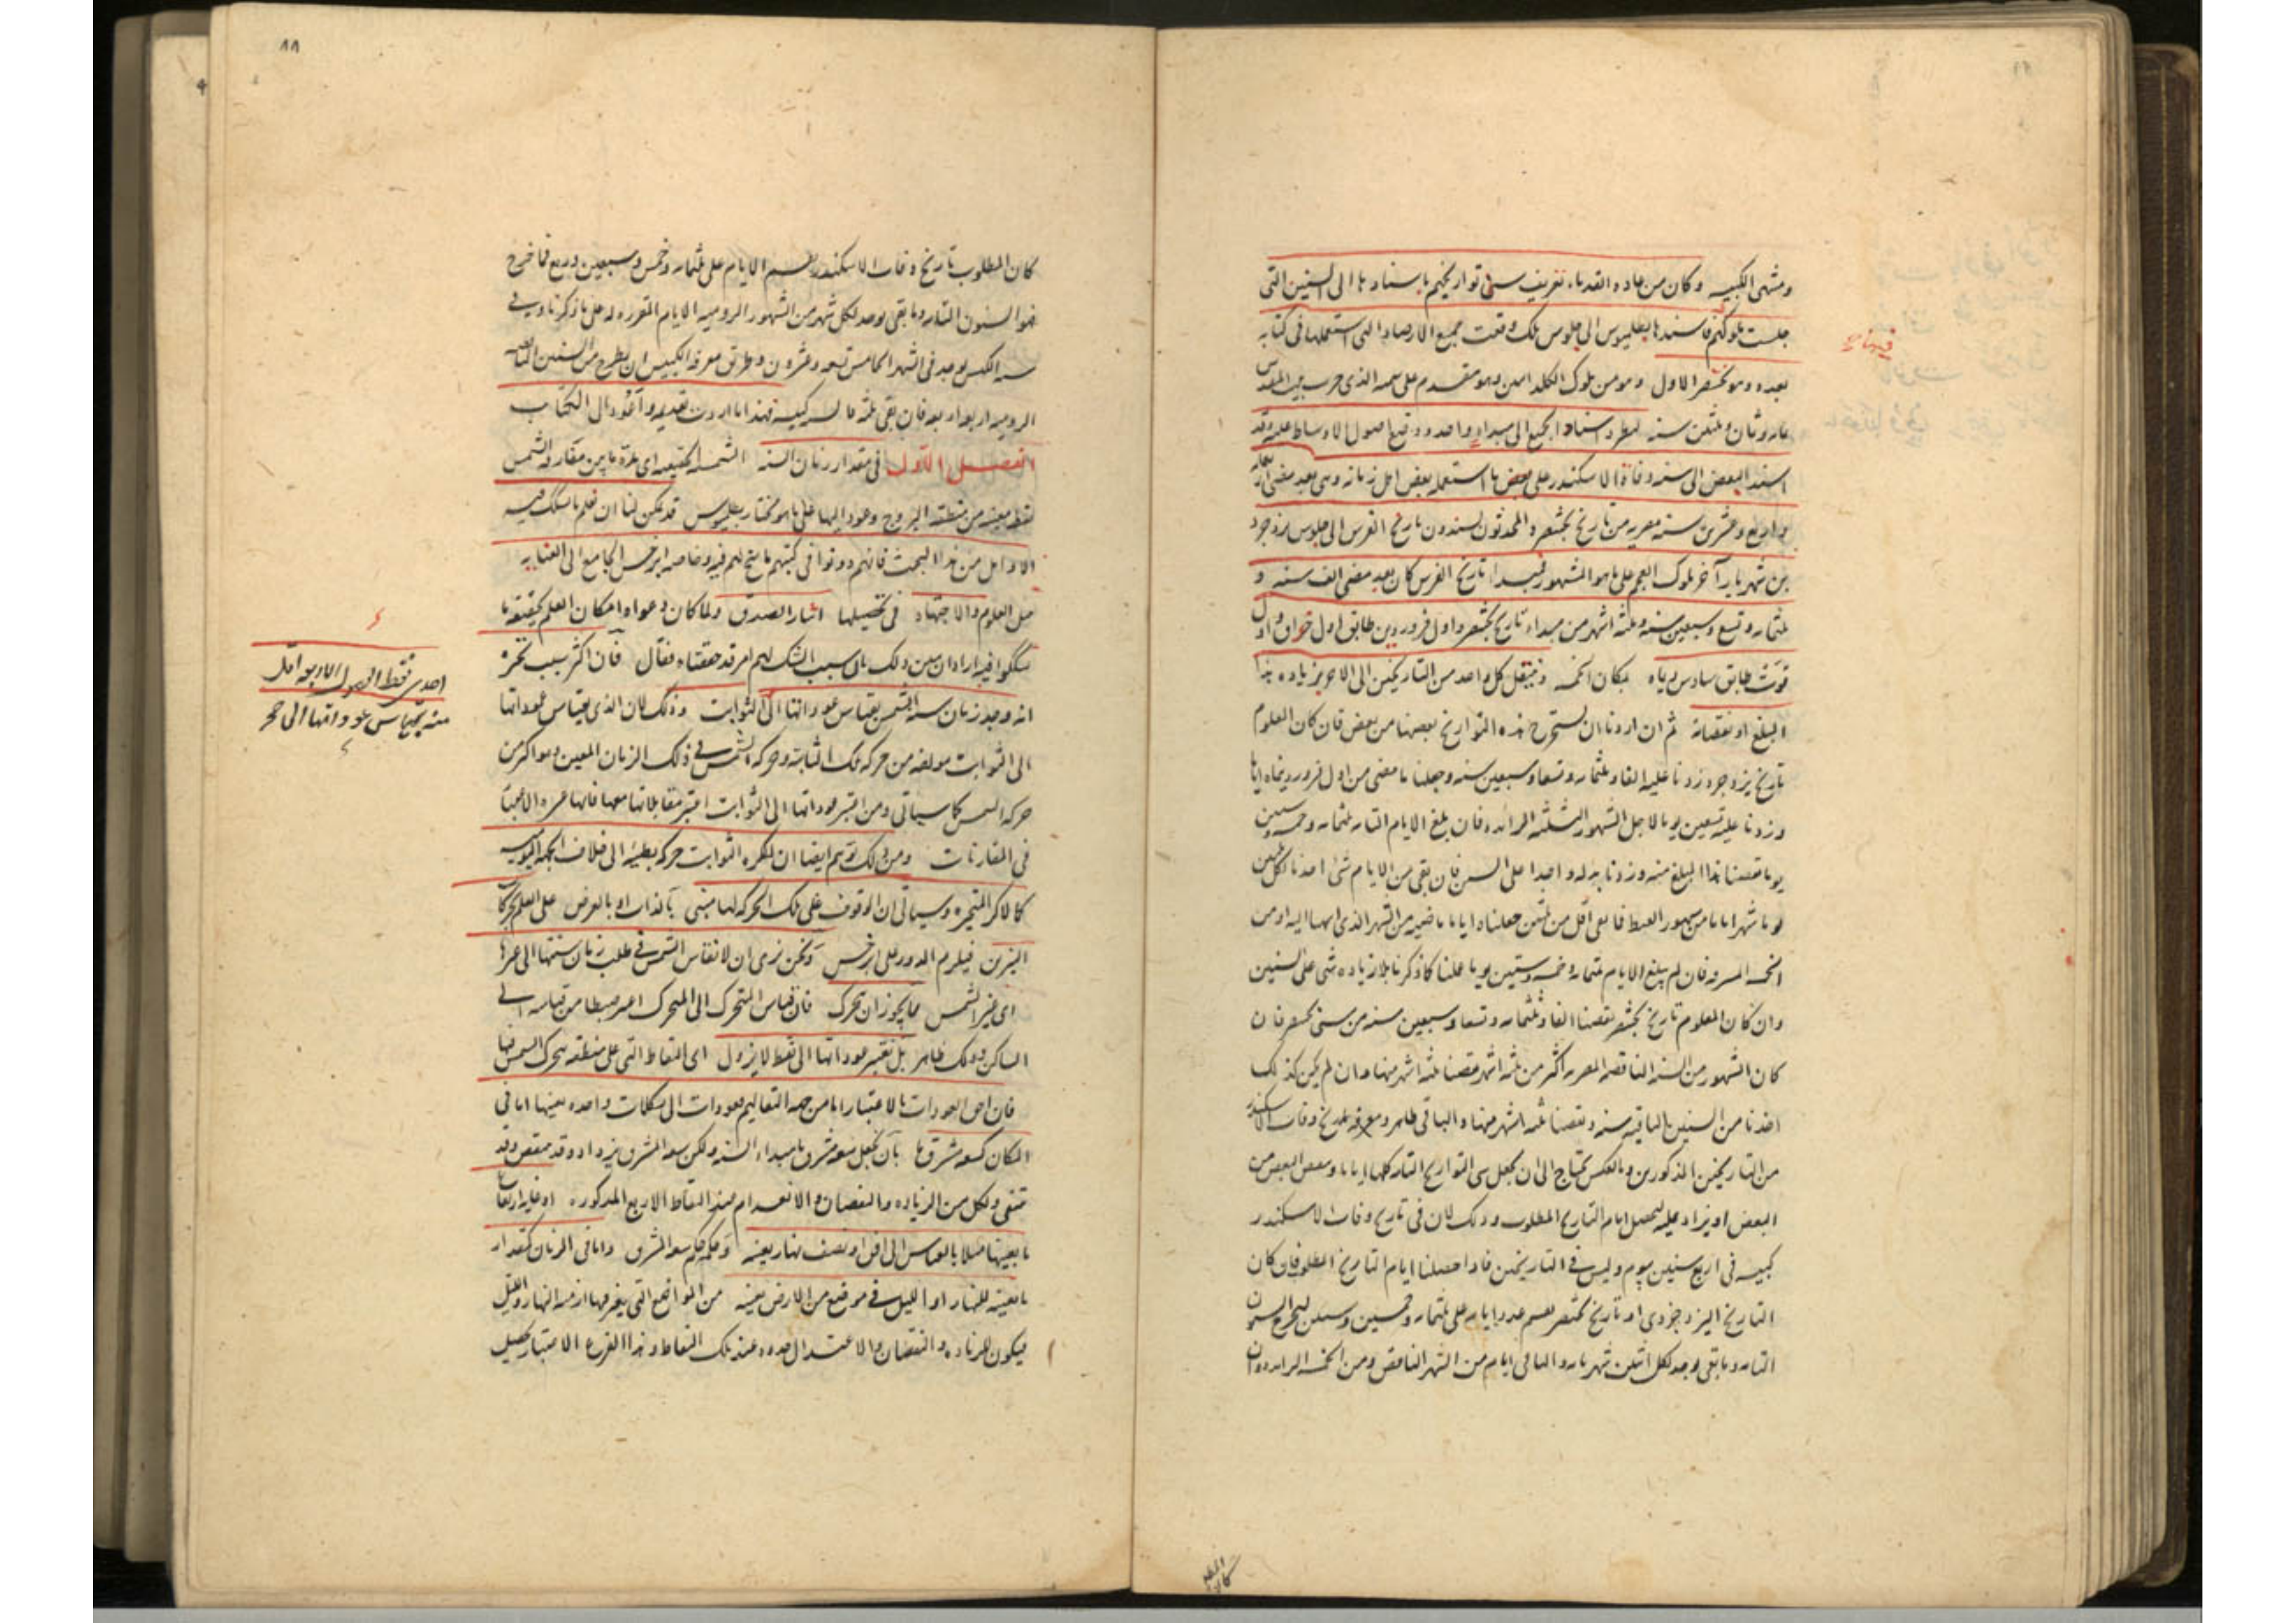 ومنتهى الكبيسه وكان من عاده القدماء تعريف سنى تواريخهم باسنادها الى السنين التى
جلست ملوكهم فاسندها بطلميوس الى جلوس ملك وقعت جميع الارصاد التى استعملها فى كتابه
بعده وهو بختنصر الاول وهو من ملوك الكلدانيين وهو متقدم على سميه الذى خرب بيت المقدس
وثلثين سنه اسناد الجميع الى مبداء واحد ووضع اصول الاوساط عليه وقد
اسند البعض الى سنه وفاة الاسكندر على بعض ما استعمله بعض اهل زمانه وهى بعد مضى اربعمايه
واربع وعشرين سنه مصريه من تاريخ بختنصر والمحدثون يسندون تاريخ الفرس الى جلوس يزدجرد
بن شهريار آخر ملوك العجم على ما هو المشهور فمبداء تاريخ الفرس كان بعد مضى الف سنه و
ثلثمايه وتسع وسبعين سنه وثلثه اشهر من مبداء تاريخ بختنصر واول فروردين طابق اول
توت طابق سادس ديماه بمكان الخمسه وينتقل كل واحد من التاريخين الى الاخر بزياده هذا
المبلغ او نقصانه ثم ان اردنا ان نستخرج هذه التواريخ بعضها من بعض فان كان المعلوم
تاريخ يزدجرد زدنا عليه الفا وثلثمايه وتسعا وسبعين سنه وجعلنا ما مضى من اول فروردينماه اياما
وزدنا عليه تسعين يوما لاجل الشهور الثلثه الزائده فان بلغ الايام التامه ثلثمايه وخمسه وستين
يوما نقصنا هذا المبلغ منه وزدنا بدله واحدا على السنين فان بقى من الايام شئ اخذنا لكل ثلثين
يوما شهرا من شهور القبط فما بقى اقل من ثلثين جعلناه اياما ماضيه من الشهر الذى انتهينا اليه او من
الخمسه المسترقه فان لم يبلغ الايام ثلثمايه وخمسه وستين يوما عملنا كما ذكرنا بلا زياده شئ على السنين
وان كان المعلوم تاريخ بختنصر نقصنا الفا وثلثمايه وتسعا وسبعين سنه من سنى بختنصر فان
كان الشهور من السنه الناقصه المصريه اكثر من ثلثه اشهر نقصنا ثلثه اشهر منها وان لم يكن كذلك
اخذنا من السنين الباقيه سنه ونقصنا ثلثه اشهر منها والباقى ظاهر ومعرفه تاريخ وفات الاسكندر
من التاريخين المذكورين وبالعكس يحتاج الى ان يجعل سنى التواريخ التامه كلها اياما وينقص البعض من
البعض او يزاد عليه ليحصل ايام التاريخ المطلوب وذلك لان فى تاريخ وفات الاسكندر
كبيسه فى اربع سنين بيوم وليس فى التاريخين فاذا حصلنا ايام التاريخ المطلوب فان كان
التاريخ اليزدجردى او تاريخ بختنصر نقسم عدد ايامه على ثلثمايه وخمسه وستين ليخرج السنون
التامه وما بقى يوخذ لكل ثلثين شهر تام والباقى ايام من الشهر الناقص ومن الخمسه الزايده وان
٨٨
كان المطلوب تاريخ وفات الاسكندر نقسم الايام على ثلثمايه وخمس وستين وربع فما خرج
فهو السنون التامه وما بقى يوخذ لكل شهر من الشهور الروميه الايام المقرره له على ما ذكرنا وفى
سنه الكبس يوخذ فى الشهر الخامس تسعه وعشرون وطريق معرفه الكبيس ان يطرح من السنين التامه
الروميه اربعه اربعه فان بقى ثلثه فالسنه كبيسه فهذا ما اردت تقديمه واعود الى الكتاب
الفصل الاول فى مقدار زمان السنه الشمسيه الحقيقيه اى مدة ما بين مفارقه الشمس
نقطه معينه من منطقه البروج وعودها اليها على ما هو مختار بطلميوس قد يمكن لنا ان نعلم ما شك فيه
الاوائل من هذا البحث فانهم دونوا فى كتبهم ما سنح لهم فيه وخاصه ابرخس الجامع الى العنايه
مثل العلوم والاجتهاد فى تحصيلها ايثار الصدق ولما كان دعواه امكان العلم بحقيقه ما
شكوا فيه اراد ان يبين ذلك بان سبب الشك لهم امر قد حققناه فقال فان اكثر سبب تحيره
انه وجد زمان سنه الشمس بقياس عوداتها الى الثوابت وذلك لان الذى بقياس عوداتها
الى الثوابت مولفه من حركه فلك الثابته وحركه الشمس فى ذلك الزمان المعين وهو اكثر من
حركه الشمس كما سياتى ومن اعتبر عوداتها الى الثوابت اعتبر مقابلاتها معها فانها عسره الاعتبار
فى المقارنات ومن ذلك توهم ايضا ان لكره الثوابت حركه بطيئه الى خلاف الحركه اليوميه
كالاكر المتحيره وسياتى ان الوقوف على تلك الحركه لها مبنى بالذات او بالعرض على العلم بحركات
النيرين فيلزم الدور على ابرخس ونحن نرى ان لا نقايس الشمس فى طلب زمان سنتها الى غيرها
اى غير الشمس مما يجوز ان تحرك فان قياس المتحرك الى المتحرك اعسر ضبطا من قياسه الى
الساكن وذلك ظاهر بل نعتبر عوداتها الى نقط لا يزول اى النقاط التى على منطقه يتحرك الشمس فيها
فان احق العودات بالاعتبار اما من جهه التعاليم فعودات الى شكلات واحده بعينها اما فى
المكان كسعه مشرقها بان نجعل سعه مشرق ما مبداء السنه ولكن سعه المشرق يزداد وقد ينقص وقد
تنتفى ولكل من الزياده والنقصان والانعدام مبدا النقاط الاربع المذكوره او غايه ارتفاع
ما بعينها مثلا بالقياس الى افق او نصف نهار بعينه وحكمه حكم سعه المشرق واما فى الزمان كمقدار
ما بعينه للنهار او الليل فى موضع من الارض بعينه من المواضع التى يتغير فيها ازمنه النهار والليل
فيكون للزياده والنقصان والاعتدال حدوده عند تلك النقاط وهذا النوع الاعتبار يحصل
احدى نقط الفصول الاربعه اقل
منه بقياس عوداتها الى